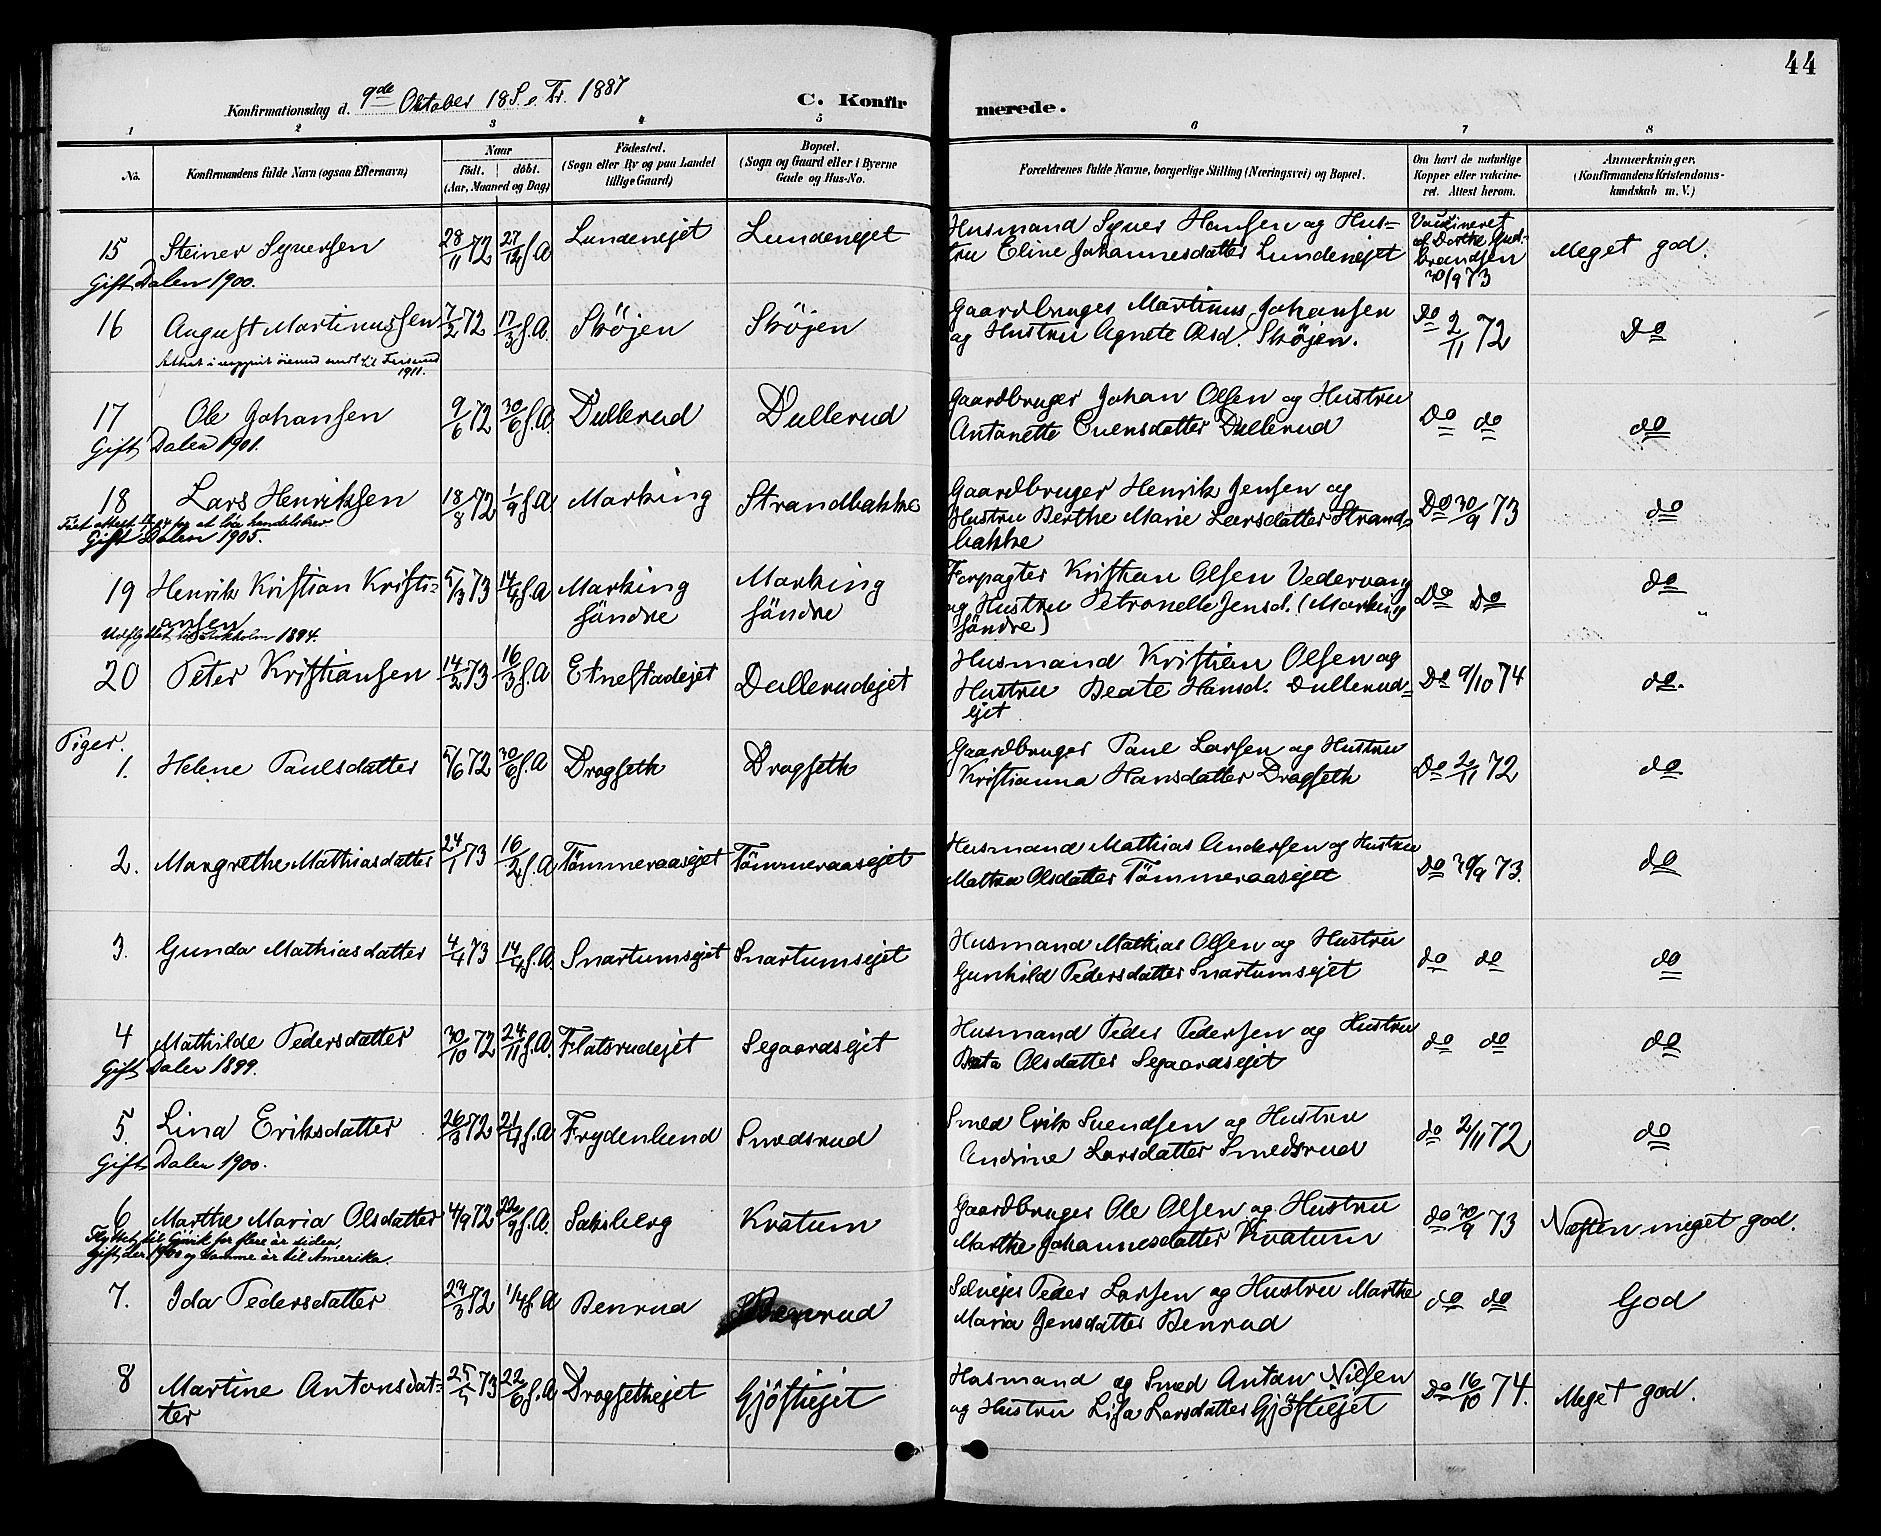 44
Konfirmationsdag d. 9de Oktober 18 S. e. Tr. 1887
C. Konfirmerede.
1 2 3 4 5 6 7 8
No. Konfirmandens fulde Navn (ogsaa Efternavn) Naar födt. döbt. (Aar, Maaned og Dag) Födested. (Sogn eller By og paa Landet tillige Gaard) Bopæl. (Sogn og Gaard eller i Byerne Gade og Hus-No. Forældrenes fulde Navne, borgerlige Stilling (Næringsvei) og Bopæl. Om havt de naturlige Kopper eller vakcineret. Attest herom. Anmærkninger. (Konfirmandens Kristendomskundskab m. V.)
15 Steiner Syversen 28/11 72 27/12 s.A Lundenejet Lundenejet Husmand Syver Hansen og Hustru Eline Johannesdatter Lundenejet Vaccineret af Dorthe Gudbrandsen 30/9 73 Meget god.
Gift Dalen 1900.
16 August Martinussen 7/2 72 17/3 s.A. Sköjen Sköjen Gaardbruger Martinus Johansen og Hustru Agnete Olsd. Sköjen. Do 2/11 72 Do
1911.
17 Ole Johansen 9/6 72 30/6 s.A. Dullerud Dullerud Gaardbruger Johan Olsen og Hustru Antonette Evensdatter Dullerud Do do do
Gift Dalen 1901.
18 Lars Henriksen 18/8 72 1/9 s.A Marking Strandbakke Gaardbruger Henrik Jensen og Hustru Berthe Marie Larsdatter Strandbakke Do 30/9 73 do
Gift Dalen 1905.
19 Henrik Kristian Kristiansen 5/3 73 14/4 s.A Marking söndre Marking söndre Forpagter Kristian Olsen Vedervang og Hustru Petronelle Jensd. (Marking söndre) Do Do do "
Udflyttet til Stokholm 1894.
20 Peter Kristiansen 14/2 73 16/3 s.A Etnestadejet Dullerudejet Husmand Kristian Olsen og Hustru Beate Hansd. Dullerudejet Do 9/10 74 do.
Piger.
1. Helene Paulsdatter 5/6 72 30/6 s.A Dragseth Dragseth Gaardbruger Paul Larsen og Hustru Kristianna Hansdatter Dragseth Do 2/11 72 do
2. Margrethe Mathiasdatter 24/1 73 16/2 s.A Tömmeraasejet Tömmeraasejet Husmand Mathias Andersen og Hustru Mathea Olsdatter Tömmeraasejet Do 30/9 73. do
3. Gunda Mathiasdatter 4/4 73 14/4 s.A. Snartumsejet Snartumsejet Husmand Mathias Olsen og Hustru Gunhild Pedersdatter Snartumsejet do do do
4 Mathilde Pedersdatter 30/10 72 24/11 s.A. Flatsrudejet Segaardsejet Husmand Peder Pedersen og Hustru Beata Olsdatter Segaardsejet do do do
Gift Dalen 1899.
5. Lina Eriksdatter 26/3 72 21/4 s.A Frydenlund Smedsrud Smed Erik Svendsen og Hustru Andrine Larsdatter Smedsrud do 2/11 72 do
Gift Dalen 1900.
6 Marthe Maria Olsdatter 4/9 72 22/9 s.A. Saksberg Kvatum Gaardbruger Ole Olsen og Hustru Marthe Johannesdatter Kvatum do 30/9 73 Næsten meget god.
Flyttet til Gjövik for flere år siden,
Gift der 1900 og samme år til Amerika.
7. Ida Pedersdatter 24/3 72 1/4 s.A Benrud Benrud Selvejer Peder Larsen og Hustru Marthe Maria Jensdatter Benrud do do God
8 Martine Antonsdatter 25/5 73 22/6 s.A Dragsethejet Gjöstiejet Husmand og Smed Anton Nilsen og Hustru Lisa Larsdatter Gjöstiejet Do 16/10 74. Meget god.